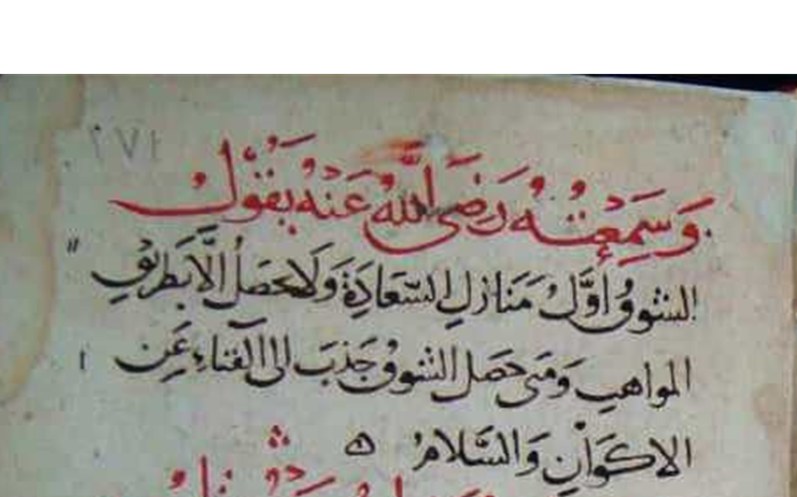 ٢٧١
وَسَمِعْتُهُ رَضِيَ اللَّهُ عَنْهُ يَقُولُ
الشوقُ اوَّلُ مَنَازلِ السَّعَادَةِ وَلَا يحصَلُ الَّا بَطريقِ
المواهبِ وَمَتى حَصَل الشوقُ جَذبَ الى الفناءِ عَنِ
الاكوَانِ وَالسَّلامُ ه